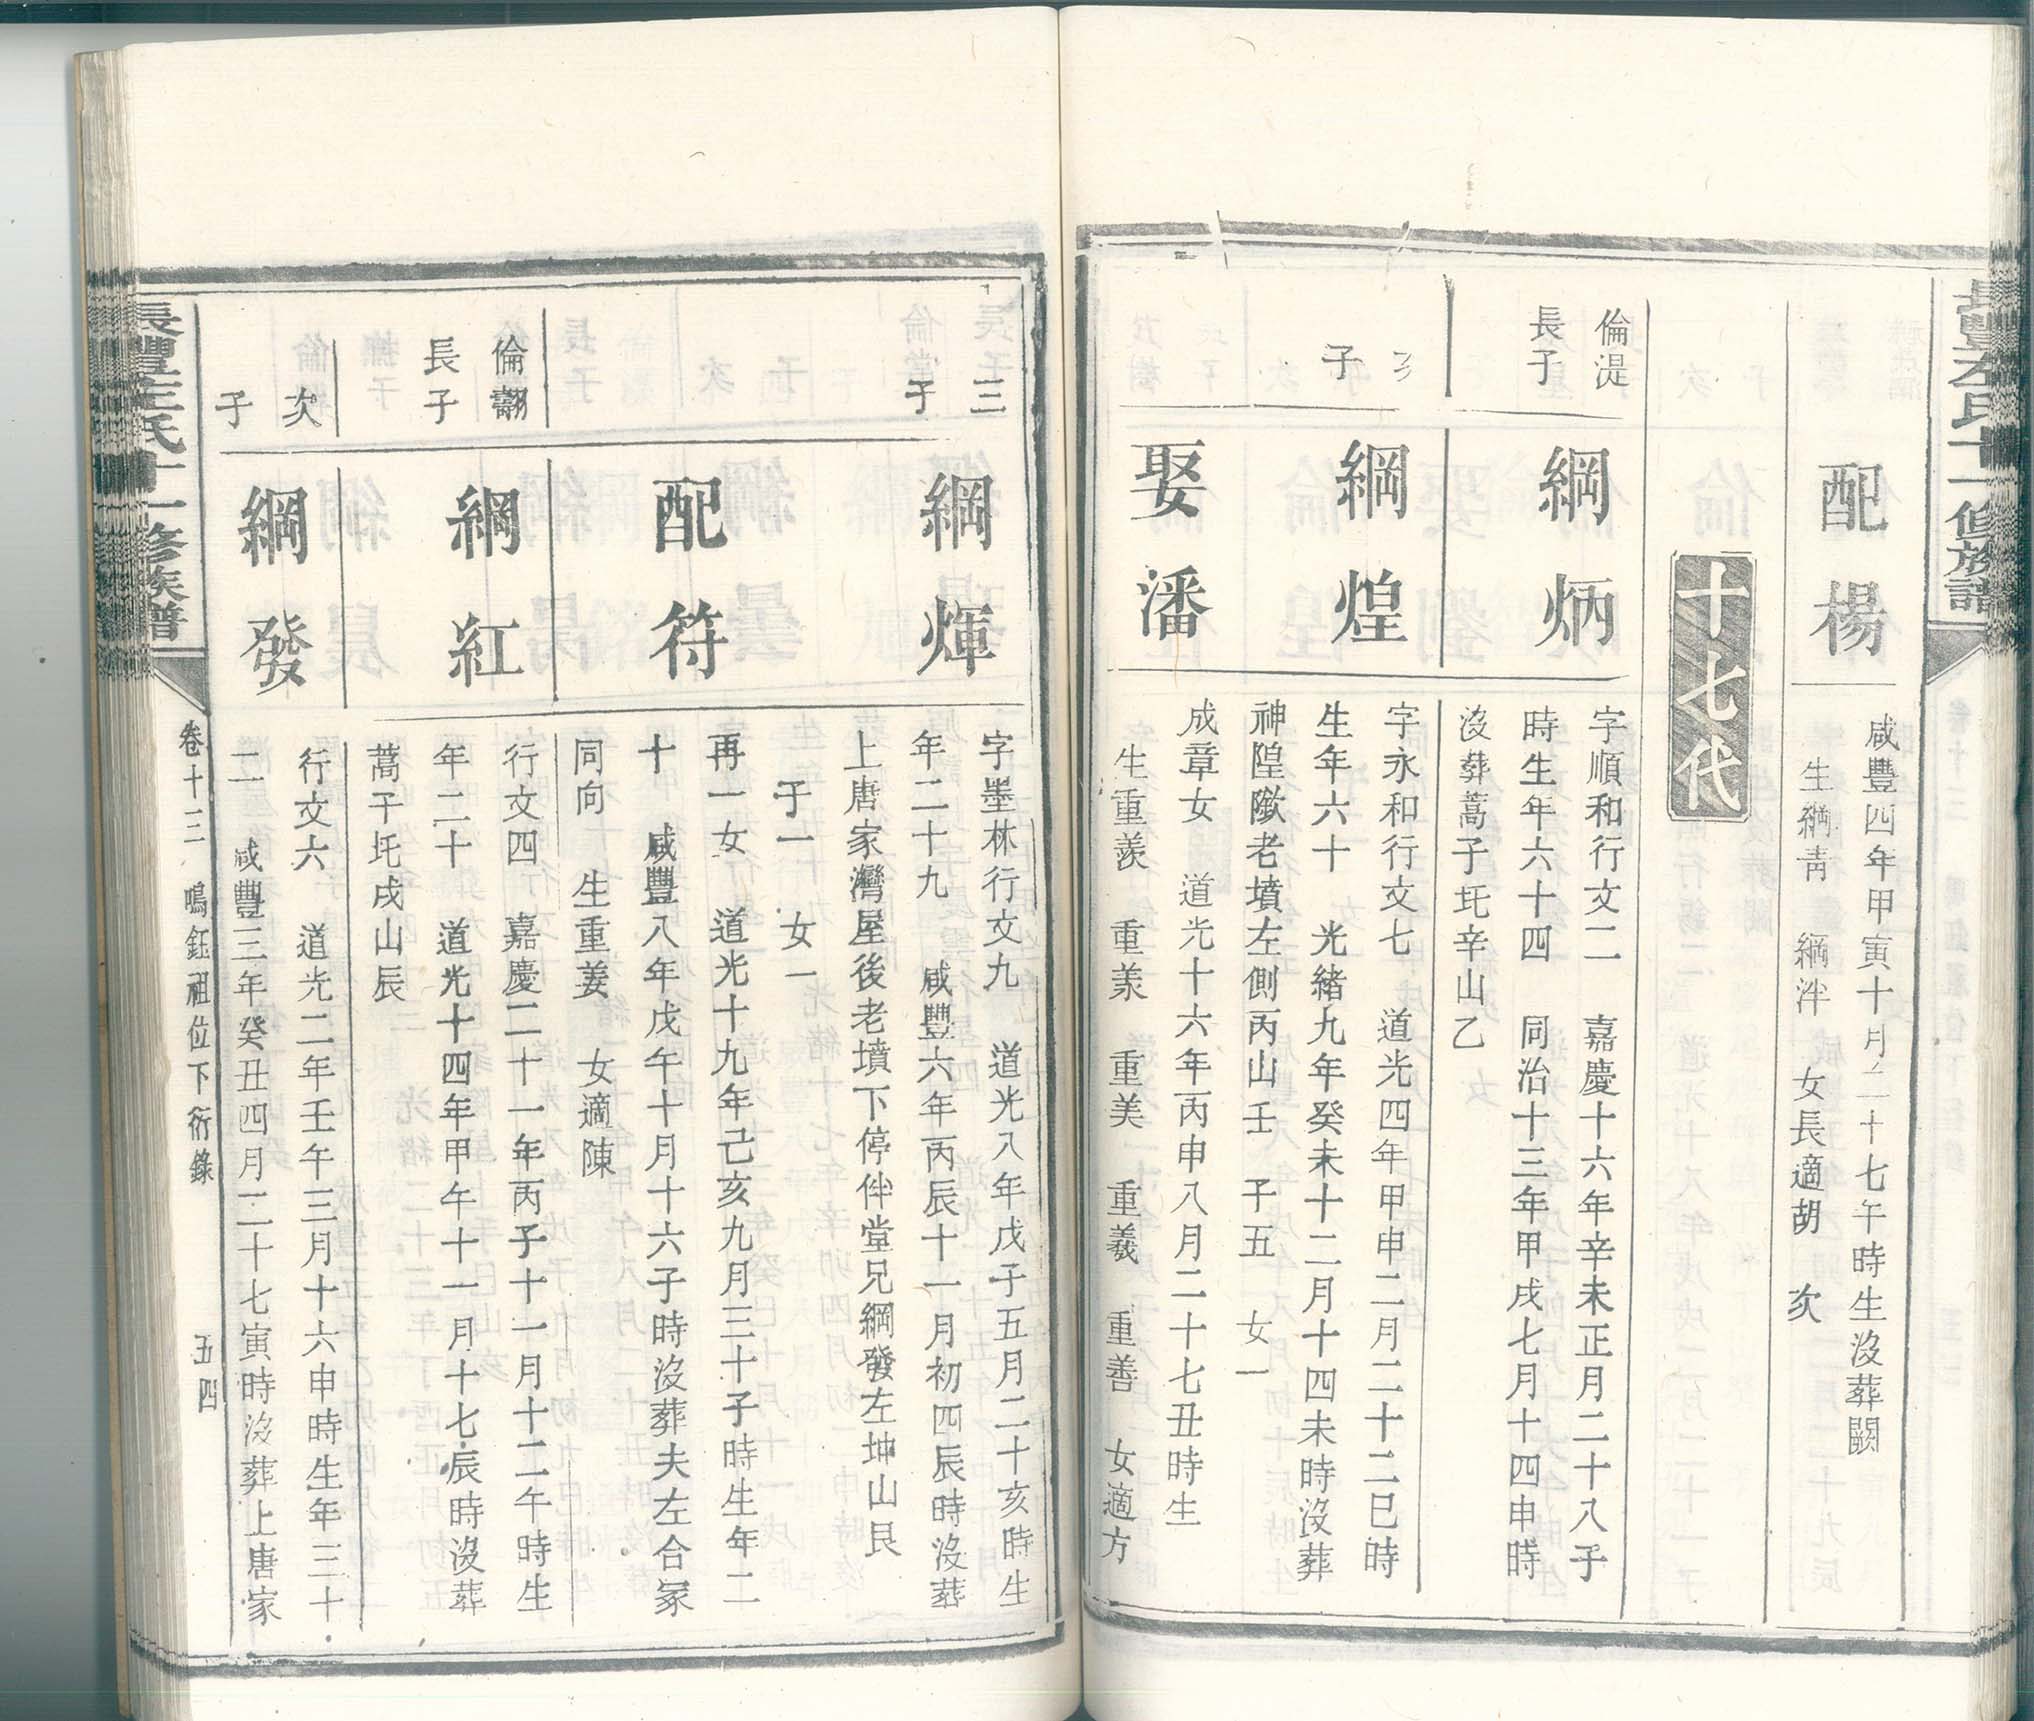 長豐左氏十一修族譜
配楊
咸豐四年甲寅十月二十七午時生沒葬闕
生綱青 綱泮 女長適胡 次
十七代
倫湜
長子
綱炳
字順和行文二 嘉慶十六年辛未正月二十八子
時生年六十四 同治十三年甲戌七月十四申時
沒葬蒿子圫辛山乙
次
子
綱煌
字永和行文七 道光四年甲申二月二十二巳時
生年六十 光緒九年癸未十二月十四未時沒葬
神隍歘老墳左側丙山壬 子五 女一
娶潘
成章女 道光十六年丙申八月二十七丑時生
生重羨 重羕 重美 重羲 重善 女適方
三
子
綱煇
字墨林行文九 道光八年戊子五月二十亥時生
年二十九 咸豐六年丙辰十一月初四辰時沒葬
上唐家灣屋後老墳下停伴堂兄綱發左坤山艮
子一 女一
配符
再一女 道光十九年己亥九月三十子時生年二
十 咸豐八年戊午十月十六子時沒葬夫左合冢
同向 生重姜 女適陳
倫翿
長子
綱紅
行文四 嘉慶二十一年丙子十一月十二午時生
年二十 道光十四年甲午十一月十七辰時沒葬
蒿子圫戌山辰
次
子
綱發
行文六 道光二年壬午三月十六申時生年三十
二 咸豐三年癸丑四月二十七寅時沒葬上唐家
長豐左氏十一修族譜
卷十三 鳴鈺祖位下衍錄 五四